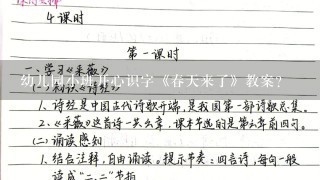 4课时
第一课时
一、学习《采薇》
幼儿园小班开心识字《春天来了》教案?
1、诗经是中国古代诗歌开端,是我国第一部诗歌总集。
2、《采薇》这首诗一共六章,课本节选的是第六章前四句。
(二)诵读感知
1、结合注释,自由诵读。提示节奏:四言诗,每句一般
读成“二、二”节拍